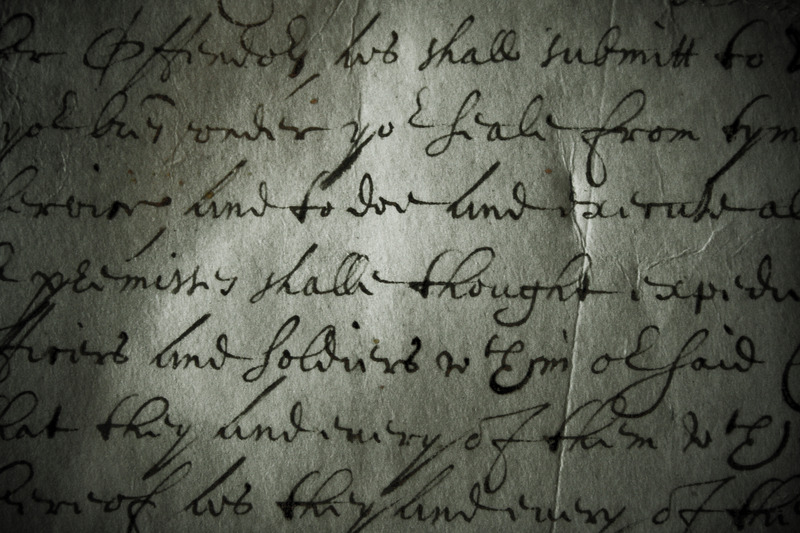 Offendor as shall submitt to
under yor seale from tym
and to doe and execute al
premisses shalle thought expedi
fficers and soldiers wthin or said
hat they and every of them wth
hereof as they and every of the